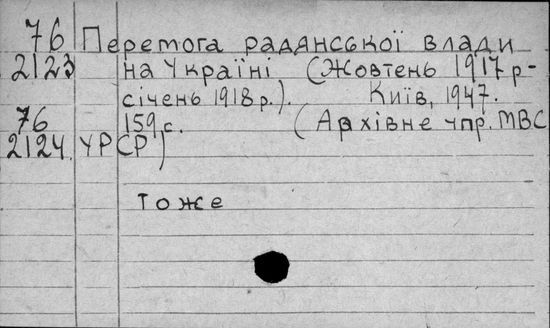 76 Перемога радянської влади
2123 на Україні (Жовтень 1917 р-
січень 1918 р.). Київ, 1947.
76 159 с. (Архівне упр. МВС
2124 УРСР)
Тоже